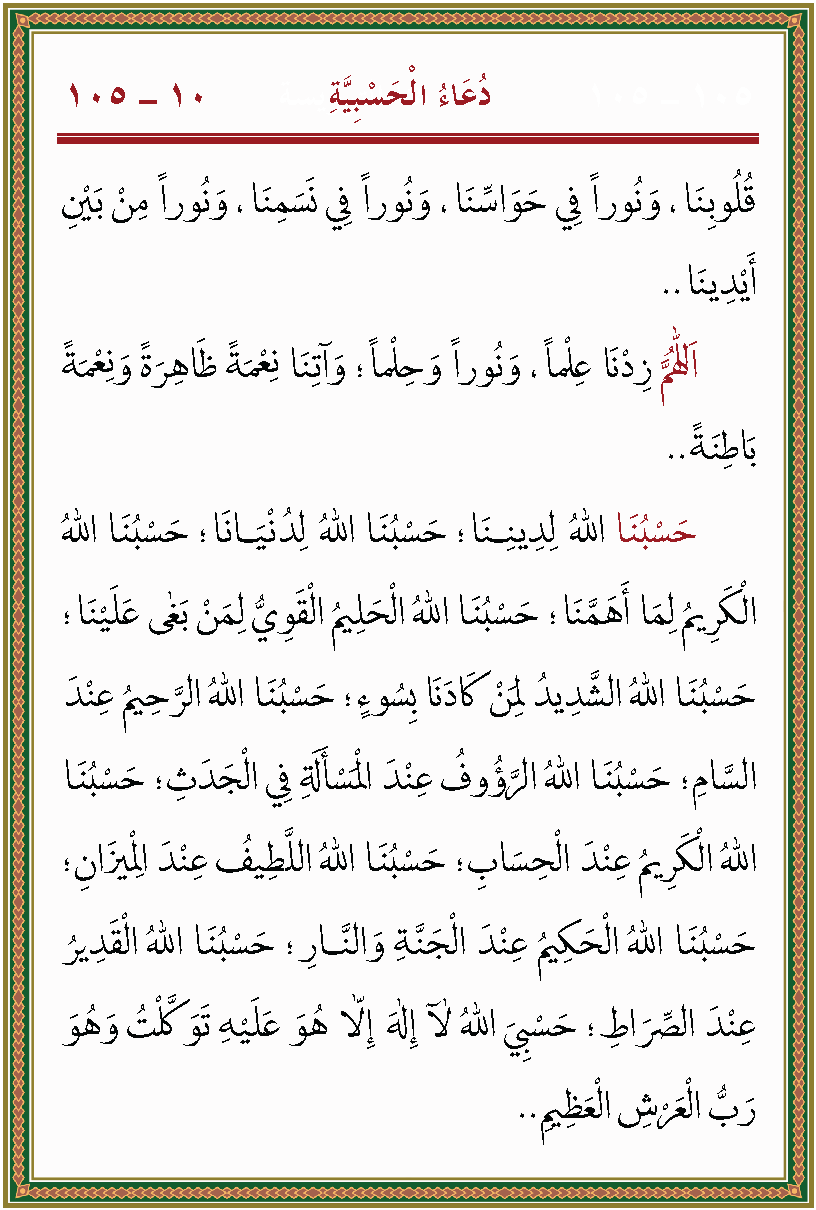 دُعَاءُ الْحَسْبِيَّةِ ١٠ – ١٠٥
قُلُوبِنَا ، وَنُوراً فِي حَوَاسِّنَا ، وَنُوراً فِي نَسَمِنَا ، وَنُوراً مِنْ بَيْنِ
أَيْدِينَا ..
اَللّٰهُمَّ زِدْنَا عِلْماً ، وَنُوراً وَحِلْماً ؛ وَآتِنَا نِعْمَةً ظَاهِرَةً وَنِعْمَةً
بَاطِنَةً ..
حَسْبُنَا اللهُ لِدِينِـنَا ؛ حَسْبُنَا اللهُ لِدُنْيَـانَا ؛ حَسْبُنَا اللهُ
الْكَرِيمُ لِمَا أَهَمَّنَا ؛ حَسْبُنَا اللهُ الْحَلِيمُ الْقَوِيُّ لِمَنْ بَغٰى عَلَيْنَا ؛
حَسْبُنَا اللهُ الشَّدِيدُ لِمَنْ كَادَنَا بِسُوءٍ ؛ حَسْبُنَا اللهُ الرَّحِيمُ عِنْدَ
السَّامِ ؛ حَسْبُنَا اللهُ الرَّؤُوفُ عِنْدَ الْمَسْأَلَةِ فِي الْجَدَثِ ؛ حَسْبُنَا
اللهُ الْكَرِيمُ عِنْدَ الْحِسَابِ ؛ حَسْبُنَا اللهُ اللَّطِيفُ عِنْدَ الْمِيزَانِ ؛
حَسْبُنَا اللهُ الْحَكِيمُ عِنْدَ الْجَنَّةِ وَالنَّـارِ ؛ حَسْبُنَا اللهُ الْقَدِيرُ
عِنْدَ الصِّرَاطِ ؛ حَسْبِيَ اللهُ لَآ إِلٰهَ إِلَّا هُوَ عَلَيْهِ تَوَكَّلْتُ وَهُوَ
رَبُّ الْعَرْشِ الْعَظِيمِ ..